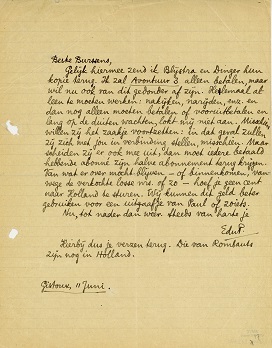 Beste Burssens,
Gelijk hiermee zend ik Blijstra en Dinger hun
kopie terug. Ik zal Avontuur 3 alleen betalen, maar
wil nu ook van dit gedonder af zijn. Helemaal al-
leen te moeten werken: nakijken, narijden, enz. en
dan nog alleen moeten betalen of vooruitbetalen en
lang op de duiten wachten, lokt mij niet aan. Misschien
willen zij het zaakje voortzetten: in dat geval zullen
zij zich met jou in verbinding stellen, misschien. Maar
scheiden zij er ook mee uit, dan moet iedere betaald
hebbende abonné zijn halve abonnement terug krijgen.
Van wat er over mocht blijven - of binnenkomen, van-
wege de verkochte losse nrs. of zo - hoef je geen cent
naar Holland te sturen. Wij kunnen dit geld beter
gebruiken voor een uitgaafje van Paul of zoiets.
Nu, tot nader dan weer. Steeds van harte je
EduP.
Hierbij dus je verzen terug. Die van
zijn nog in Holland.
Gistoux, 11 Juni.